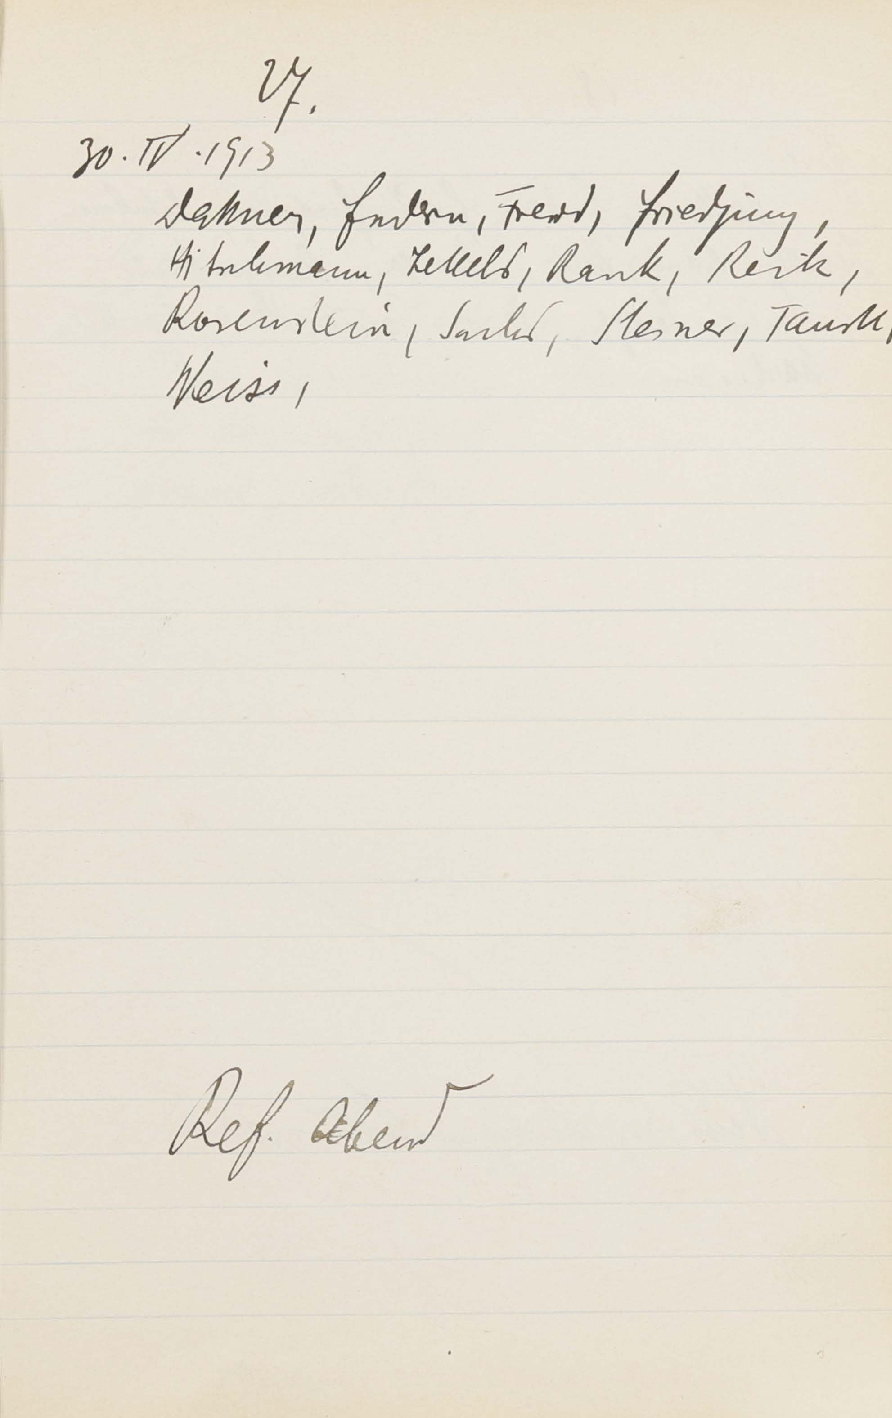 27.
30. IV. 1913
Dattner, Federn, Freud, Friedjung,
Hitschmann, Jekels, Rank, Reik,
Rosenstein, Sachs, Steiner, Tausk,
Weiss,
Ref. Abend